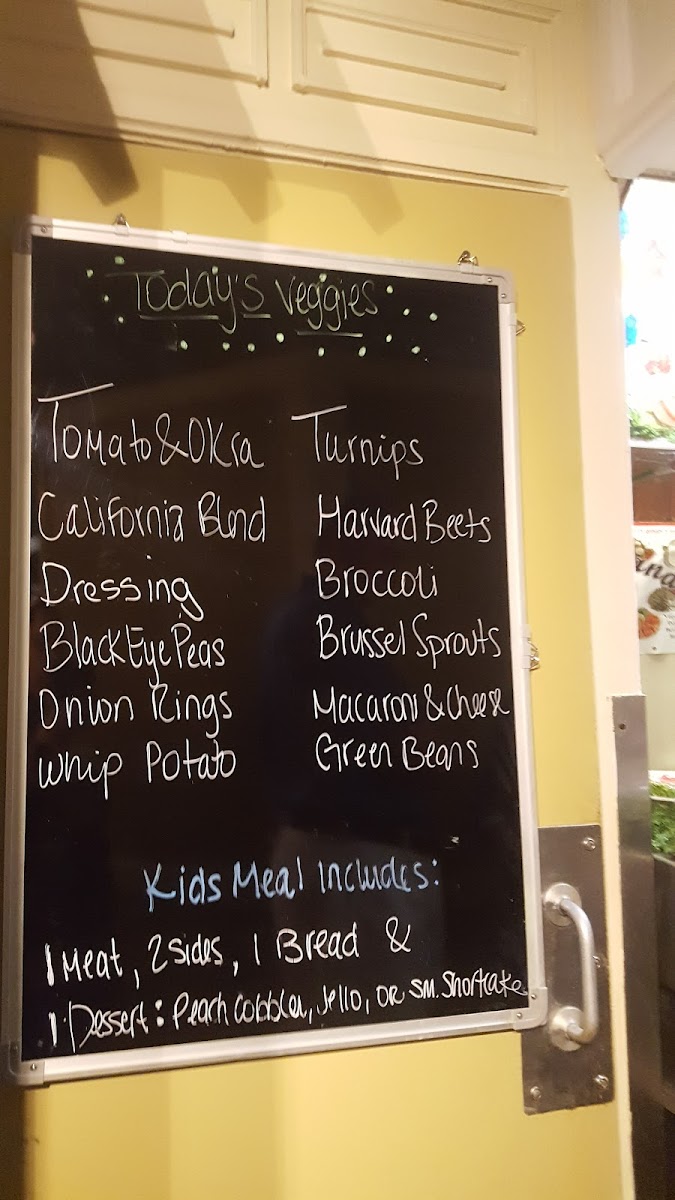 Today's Veggies
Tomato & Okra
California Blend
Dressing
Black Eye Peas
Onion Rings
Whip Potato
Turnips
Harvard Beets
Broccoli
Brussel Sprouts
Macaroni & Cheese
Green Beans
Kids Meal Includes:
1 Meat, 2 sides, 1 Bread &
1 Dessert: Peach Cobbler, Jello, or sm. Shortcake